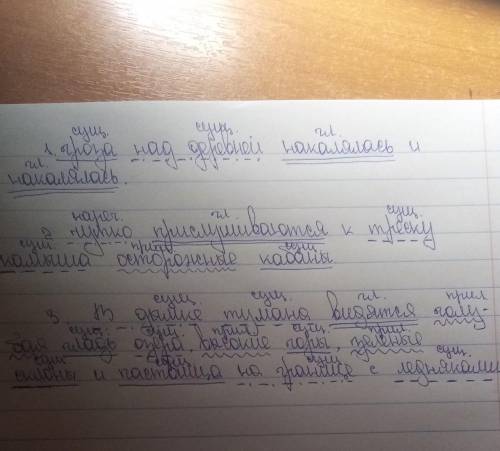 сущ. сущ. гл.
1. гроза над деревней накалялась и
гл.
накалялась.
нареч. гл. сущ.
2 чутко прислушиваются к треску
сущ. прил. сущ.
камыша осторожные кабаны
сущ. сущ. гл. прил
3 В дымке тумана видятся голу-
сущ. сущ. прил. сущ. прил.
бая гладь озера, высокие горы, зелёные
сущ. сущ. сущ. сущ.
склоны и пастбища на границе с ледниками